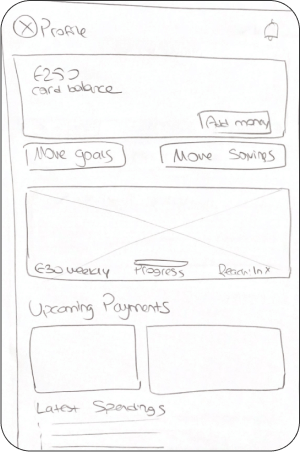 Profile
£250
card balance
Add money
Move goals
Move Savings
£30 weekly
Progress
Reach: In x
Upcoming Payments
Latest Spendings